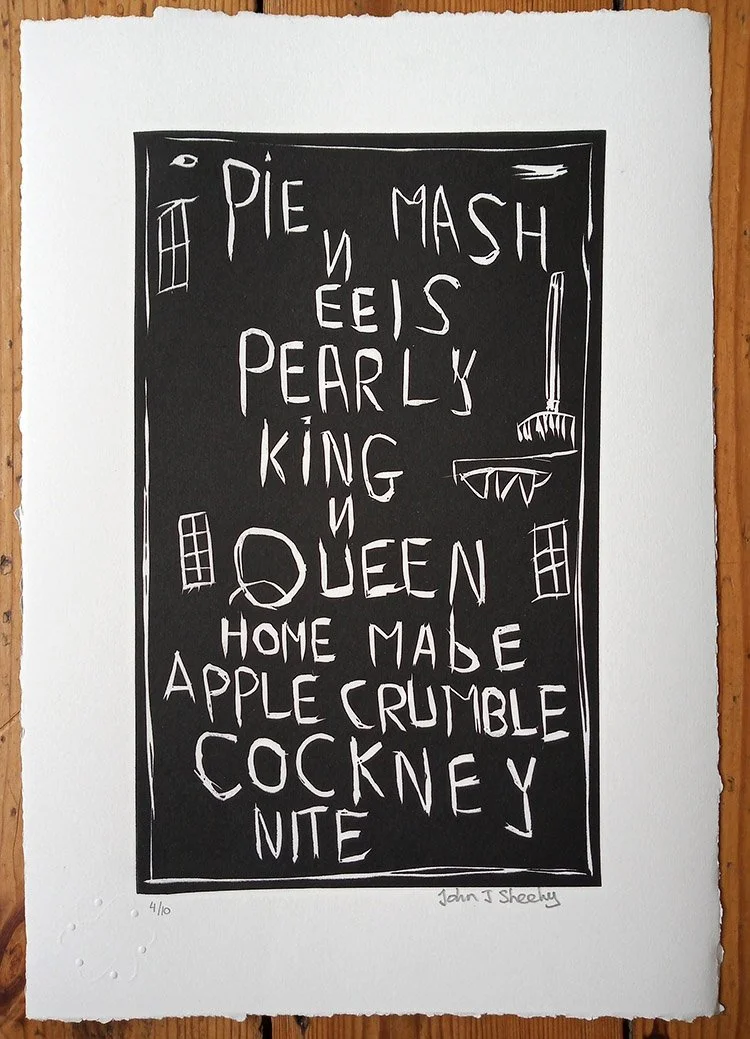 PiE MASH
N
EElS
PEARLY
KiNG
N
QUEEN
HOME MAbE
APPLE CRUMBLE
COCKNEY
NITE
4/10
John J Sheehy